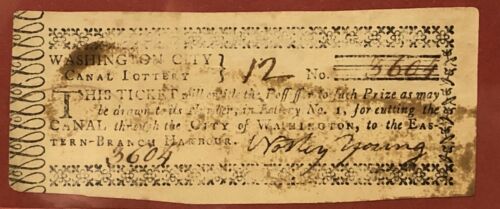 WASHINGTON CITY
CANAL LOTTERY } 12 No. 3604
THIS TICKET will entitle the Possessor to such Prize as may
be drawn to its Number, in Lottery No. 1, for cutting the
CANAL through the CITY of WASHINGTON, to the EAS-
TERN-BRANCH HARBOUR.
3604 Notley Young